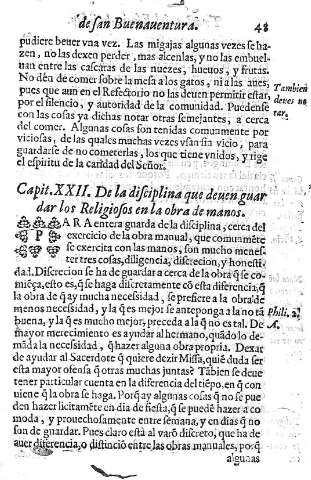 de san Buenauentura. 48
pudiere beuer vna vez. Las migajas algunas vezes se ha-
zen, no las dexen perder, mas alcenlas, y no las embuel-
uan entre las cascaras de las nuezes, hueuos, y frutas.
No dèn de comer sobre la mesa a los gatos, ni a las aues
pues que aun en el Refectorio no las deuen permitir estar,
por el silencio, y autoridad de la comunidad. Puedense
con las cosas ya dichas notar otras semejantes, a cerca
del comer. Algunas cosas son tenidas comunmente por
viciosas, de las quales muchas vezes vsan sin vicio, para
guardarse de no cometerlas, los que tiene vnidos, y rige
el espiritu de la caridad del Señor.
Tambien
deues no
tar.
Capit. XXII. De la disciplina que deuen guar
dar los Religiosos en la obra de manos.
PARA entera guarda de la disciplina, cerca del
exercicio de la obra manual, que comunmẽte
se exercita con las manos, son mucho menes-
ter tres cosas, diligencia, discrecion, y honesti-
dad. Discrecion se ha de guardar a cerca de la obra q̃ se co-
miẽça, esto es, q̃ se haga discretamente cõ esta diferencia, q̃
la obra de q̃ ay mucha necessidad, se prefiere a la obra de
menos necessidad, y la q̃ es mejor se anteponga a la no tã
buena, y la q̃ es mucho mejor, preceda a la q̃ no es tal. De
mayor merecimiento es ayudar al hermano, quãdo lo de-
mãda la necessidad, q̃ hazer alguna obra propria. Dexar
de ayudar al Sacerdote q̃ quiere dezir Missa, quiẽ duda ser
esta mayor ofensa q̃ otras muchas juntas? Tãbien se deue
tener particular cuenta en la diferencia del tiẽpo, en q̃ con
uiene q̃ la obra se haga. Porq̃ ay algunas cosas q̃ no se pue
den hazer licitamẽte en dia de fiesta, q̃ se puedẽ hazer a co
moda, y prouechosamente entre semana, y en dias q̃ no
son de guardar. Pues claro està al varõ discreto, que ha de
auer diferencia, o distinciõ entre las obras manuales, porq̃
algunas
Phili. 2.
A.